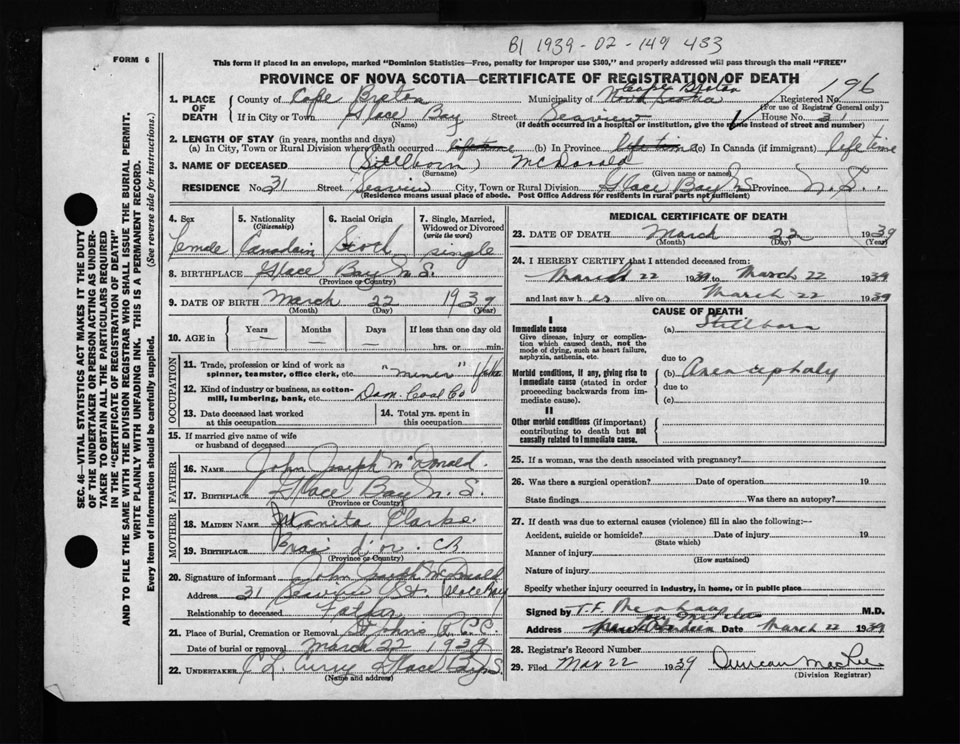 B1 1939-02-149 433
FORM 6
This form if placed in an envelope, marked "Dominion Statistics—Free, penalty for improper use $300," and properly addressed will pass through the mail "FREE"
PROVINCE OF NOVA SCOTIA—CERTIFICATE OF REGISTRATION OF DEATH
1. PLACE OF DEATH County of Cape Breton Municipality of Cape Breton Nova Scotia Registered No. 196
(For use of Registrar General only)
If in City or Town Glace Bay Street Seaview House No. 31
(Name) (If death occurred in a hospital or institution, give the name instead of street and number)
2. LENGTH OF STAY (in years, months and days)
(a) In City, Town or Rural Division where death occurred lifetime (b) In Province lifetime (c) In Canada (if immigrant) life time
3. NAME OF DECEASED (Stillborn) McDonald
(Surname) (Given name or names)
RESIDENCE No. 31 Street Seaview City, Town or Rural Division Glace Bay NS Province N.S.
(Residence means usual place of abode. Post Office Address for residents in rural parts not sufficient)
4. Sex 5. Nationality (Citizenship) 6. Racial Origin 7. Single, Married, Widowed or Divorced (write the word)
Female Canadain Scotch single
8. BIRTHPLACE Glace Bay N.S.
(Province or Country)
9. DATE OF BIRTH March 22 1939
(Month) (Day) (Year)
10. AGE in Years Months Days If less than one day old
— — — hrs. or min.
OCCUPATION
11. Trade, profession or kind of work as spinner, teamster, office clerk, etc. "miner"
12. Kind of industry or business, as cotton-mill, lumbering, bank, etc. Dom. Coal Co
13. Date deceased last worked at this occupation
14. Total yrs. spent in this occupation
15. If married give name of wife or husband of deceased
FATHER
16. NAME John Joseph McDonald.
17. BIRTHPLACE Glace Bay N.S.
(Province or Country)
MOTHER
18. MAIDEN NAME Juanita Clarke
19. BIRTHPLACE Bras d'or C.B.
(Province or Country)
20. Signature of informant John Joseph McDonald
Address 31 Seaview St. Glace Bay
Relationship to deceased Father
21. Place of Burial, Cremation or Removal St John's
Date of burial or removal March 22 1939
22. UNDERTAKER C L Curry Glace Bay N.S.
(Name and address)
MEDICAL CERTIFICATE OF DEATH
23. DATE OF DEATH March 22 1939
(Month) (Day) (Year)
24. I HEREBY CERTIFY that I attended deceased from:
March 22 1939 to March 22 1939
and last saw her alive on March 22 1939
CAUSE OF DEATH
I
Immediate cause (a) Stillborn
Give disease, injury or complication which caused death, not the mode of dying, such as heart failure, asphyxia, asthenia, etc.
due to
Morbid conditions, if any, giving rise to immediate cause (stated in order proceeding backwards from immediate cause) (b) Anencephaly
due to
(c)
II
Other morbid conditions (if important) contributing to death but not causally related to immediate cause.
25. If a woman, was the death associated with pregnancy?
26. Was there a surgical operation? Date of operation 19
State findings Was there an autopsy?
27. If death was due to external causes (violence) fill in also the following:—
Accident, suicide or homicide? Date of injury 19
(State which)
Manner of injury
(How sustained)
Nature of injury
Specify whether injury occurred in industry, in home, or in public place
Signed by M.D.
Address Date March 22 1939
28. Registrar's Record Number
29. Filed Mar 22 1939 Duncan MacRae
(Division Registrar)
SEC. 46—VITAL STATISTICS ACT MAKES IT THE DUTY
OF THE UNDERTAKER OR PERSON ACTING AS UNDER-
TAKER TO OBTAIN ALL THE PARTICULARS REQUIRED
IN THE "CERTIFICATE OF REGISTRATION OF DEATH"
AND TO FILE THE SAME WITH THE DIVISION REGISTRAR WHO SHALL ISSUE THE BURIAL PERMIT.
WRITE PLAINLY WITH UNFADING INK. THIS IS A PERMANENT RECORD.
Every item of information should be carefully supplied. (See reverse side for instructions.)